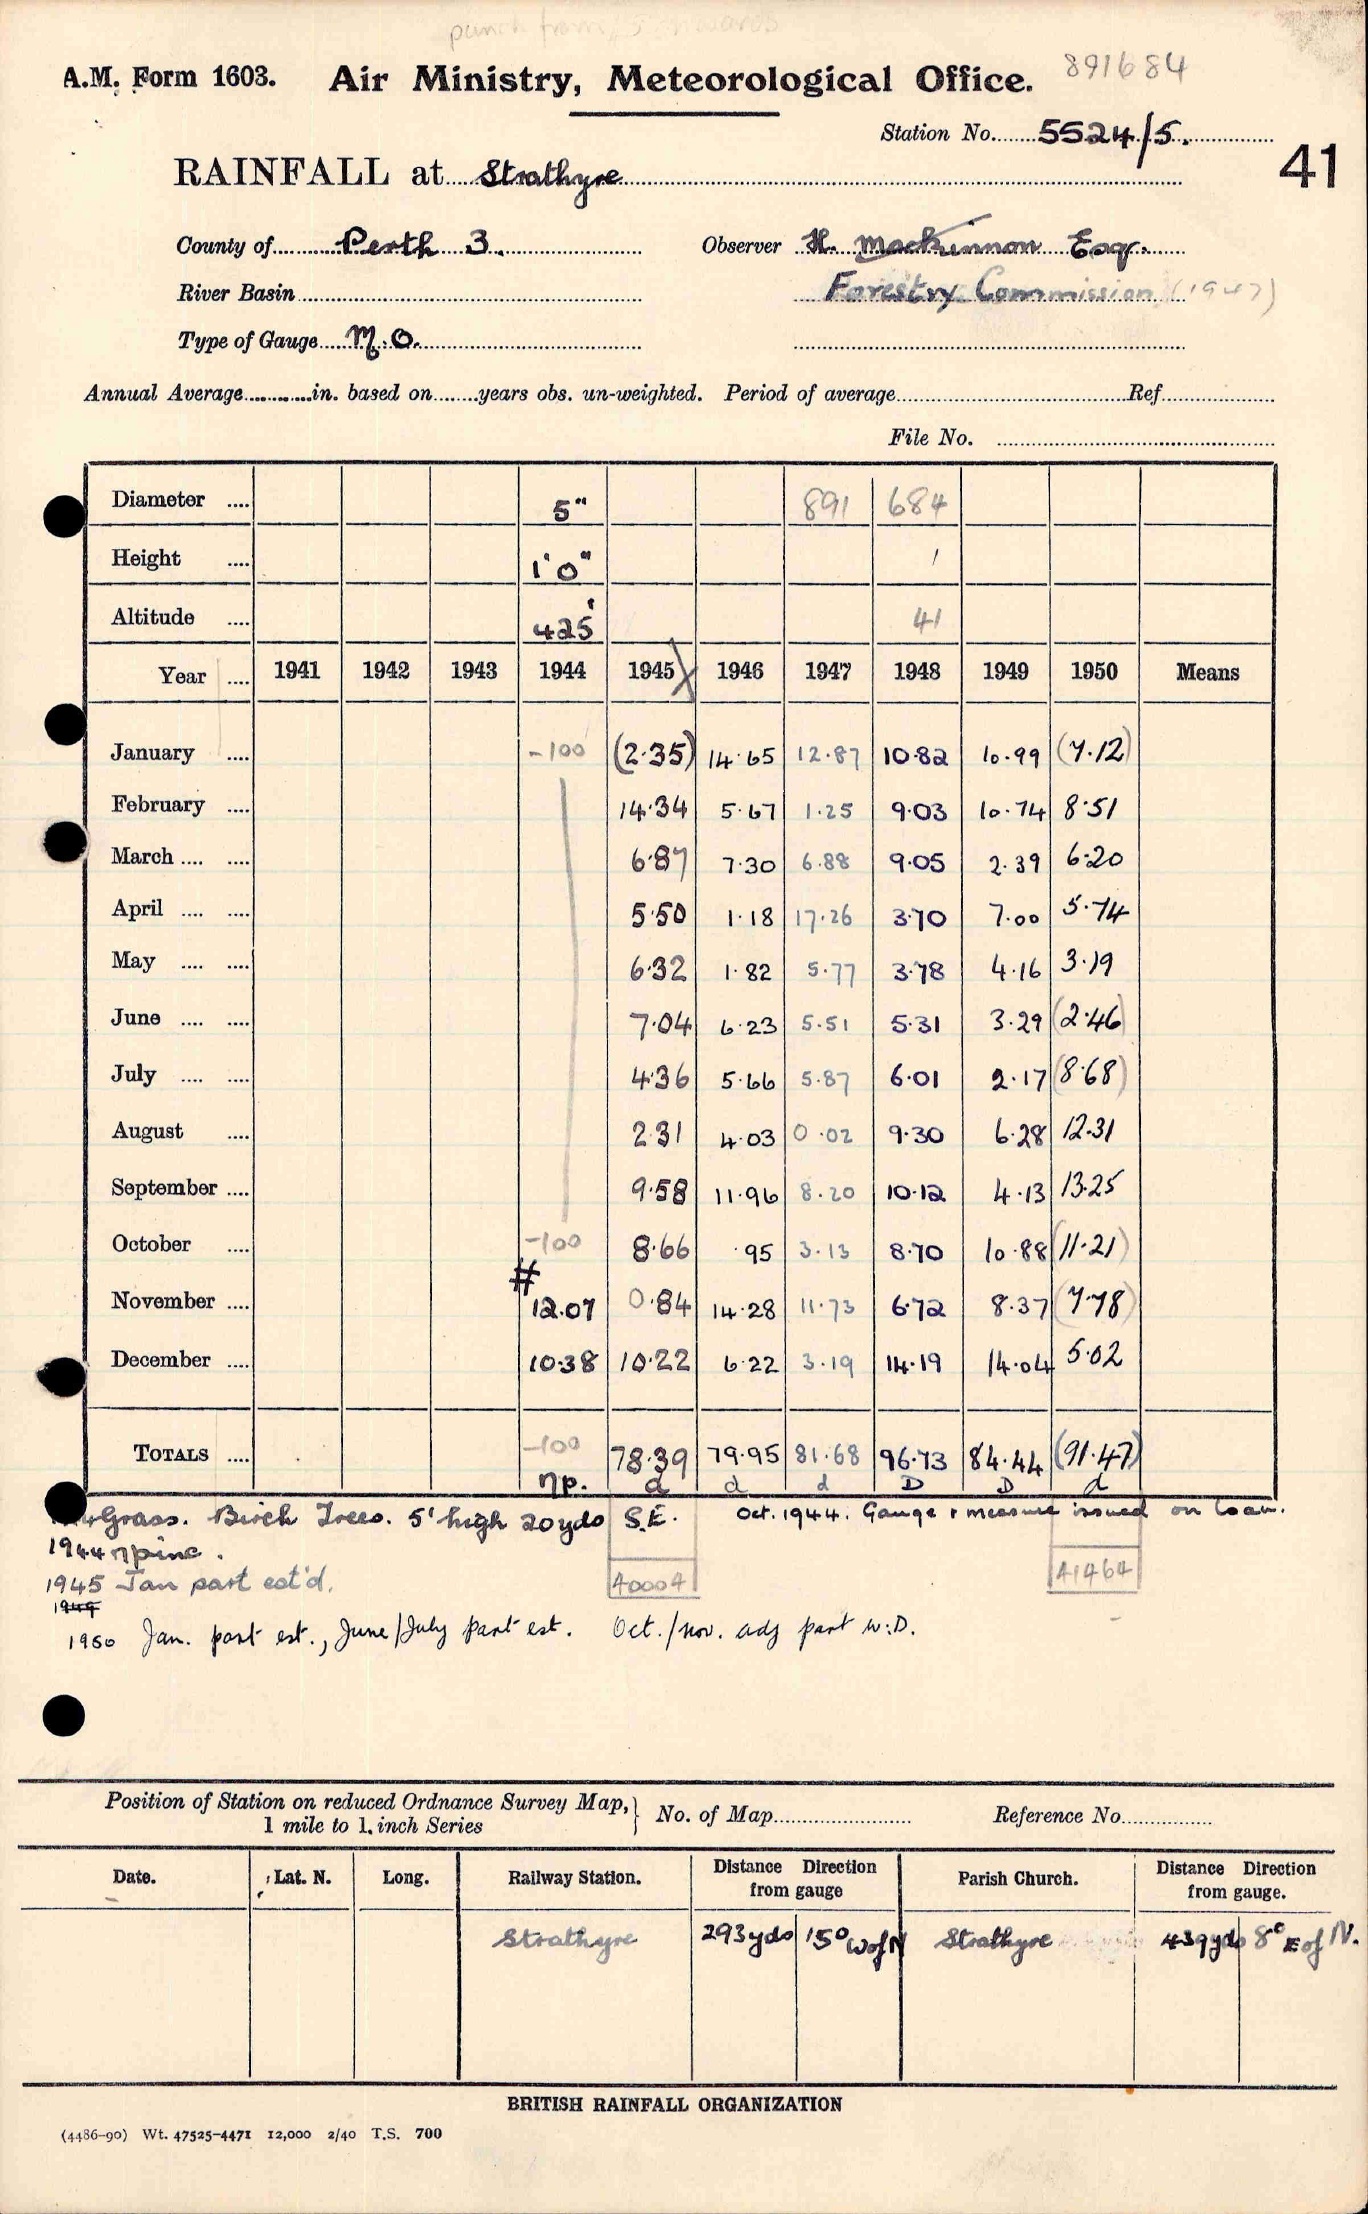 punch from
A.M. Form 1603. Air Ministry, Meteorological Office. 891684
Station No. 5524/5.
41
RAINFALL at Strathyre
County of Perth 3. Observer H. Mackinnon Esq.
River Basin Forestry Commission (1947)
Type of Gauge M.O.
Annual Average in. based on years obs. un-weighted. Period of average Ref.
File No.
Diameter 5" 891 684
Height 1'0" 1
Altitude 425' 41
Year 1941 1942 1943 1944 1945 1946 1947 1948 1949 1950 Means
January -100 (2.35) 14.65 12.87 10.82 10.99 (7.12)
February 14.34 5.67 1.25 9.03 10.74 8.51
March 6.87 7.30 6.88 9.05 2.39 6.20
April 5.50 1.18 17.26 3.70 7.00 5.74
May 6.32 1.82 5.77 3.78 4.16 3.19
June 7.04 6.23 5.51 5.31 3.29 (2.46)
July 4.36 5.66 5.87 6.01 2.17 (8.68)
August 2.31 4.03 0.02 9.30 6.28 12.31
September 9.58 11.96 8.20 10.12 4.13 13.25
October -100 8.66 .95 3.13 8.70 10.88 (11.21)
#
November 12.07 0.84 14.28 11.73 6.72 8.37 (7.78)
December 10.38 10.22 6.22 3.19 14.19 14.04 5.02
TOTALS -100 78.39 79.95 81.68 96.73 84.44 (91.47)
np. d d d D D d
Grass. Birch Trees. 5' high 20yds S.E. Oct. 1944. Gauge & measure issued on loan.
1944 npinc.
1945 Jan part est'd. 40004 41464
1949
1950 Jan. part est., June/July part est. Oct./Nov. adj part w.D.
Position of Station on reduced Ordnance Survey Map, No. of Map Reference No.
1 mile to 1 inch Series
Date. Lat. N. Long. Railway Station. Distance Direction from gauge Parish Church. Distance Direction from gauge.
Strathyre 293yds 15° W of N Strathyre 439yds 8° E of N.
BRITISH RAINFALL ORGANIZATION
(4486-90) Wt. 47525-4471 12,000 2/40 T.S. 700